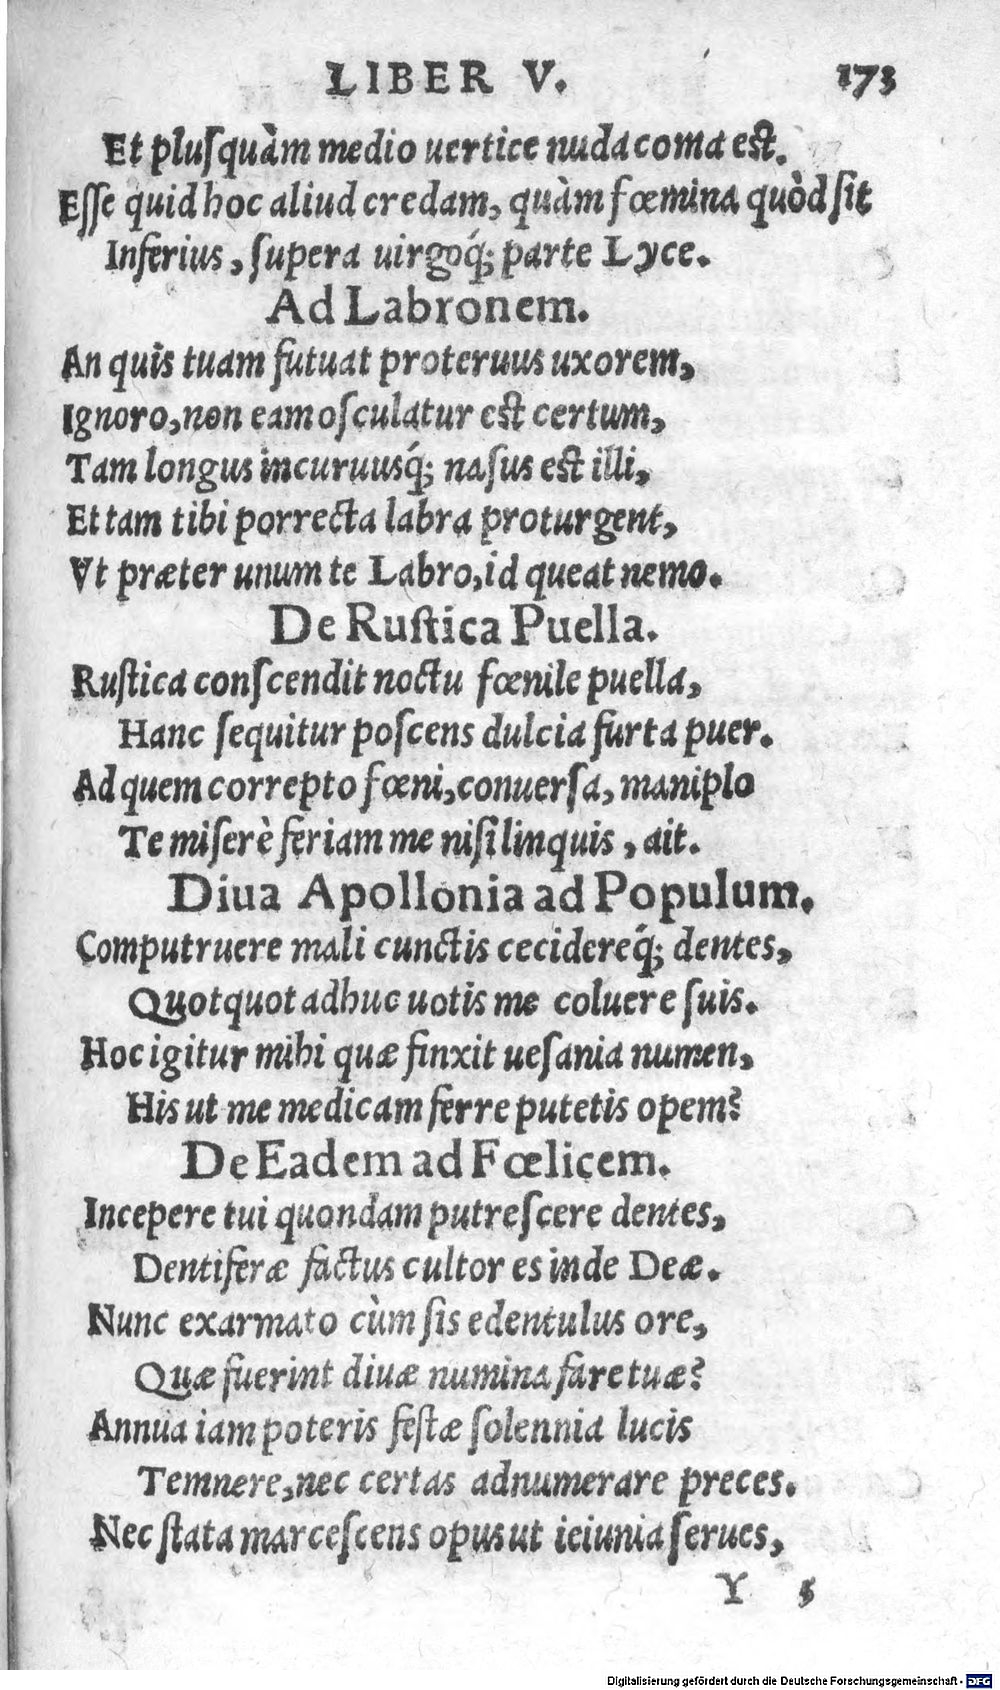 LIBER V. 173
Et plusquàm medio uertice nuda coma est.
Esse quid hoc aliud credam, quàm fœmina quòd sit
Inferius, supera uirgoq́; parte Lyce.
Ad Labronem.
An quis tuam futuat proteruus uxorem,
Ignoro, non eam osculatur est certum,
Tam longus incuruusq́; nasus est illi,
Et tam tibi porrecta labra proturgent,
Vt præter unum te Labro, id queat nemo.
De Rustica Puella.
Rustica conscendit noctu fœnile puella,
Hanc sequitur poscens dulcia furta puer.
Ad quem correpto fœni, conuersa, maniplo
Te miserè feriam me nisi linquis, ait.
Diua Apollonia ad Populum.
Computruere mali cunctis cecidereq́; dentes,
Quotquot adhuc uotis me coluere suis.
Hoc igitur mihi quæ finxit uesania numen,
His ut me medicam ferre putetis opem?
De Eadem ad Fœlicem.
Incepere tui quondam putrescere dentes,
Dentiferæ factus cultor es inde Deæ.
Nunc exarmato cùm sis edentulus ore,
Quæ fuerint diuæ numina fare tuæ?
Annua iam poteris festæ solennia lucis
Temnere, nec certas adnumerare preces.
Nec stata marcescens opus ut ieiunia serues,
Y 5
Digitalisierung gefördert durch die Deutsche Forschungsgemeinschaft - DFG